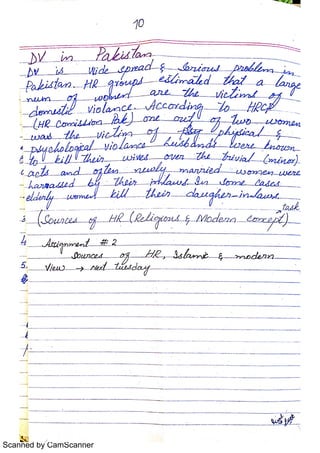 10
DV in Pakistan
DV is wide spread & serious problem in
Pakistan. HR groups estimated that a large
num of women are the victims of
domestic violance. According to HRCP
(HR Comission Pak) one out of two women
was the victim of physical &
psychological violance husbands were known
to kill their wives over the trivial (minor)
acts and often newly married women were
harrassed by their inlaws. In some cases
elderly women kill their daugher-in-laws.
task
(Sources of HR (Religions & Modern concept)
4 Assignment # 2
Sources of HR, Islamic & modern
5. View → next tuesday
Scanned by CamScanner